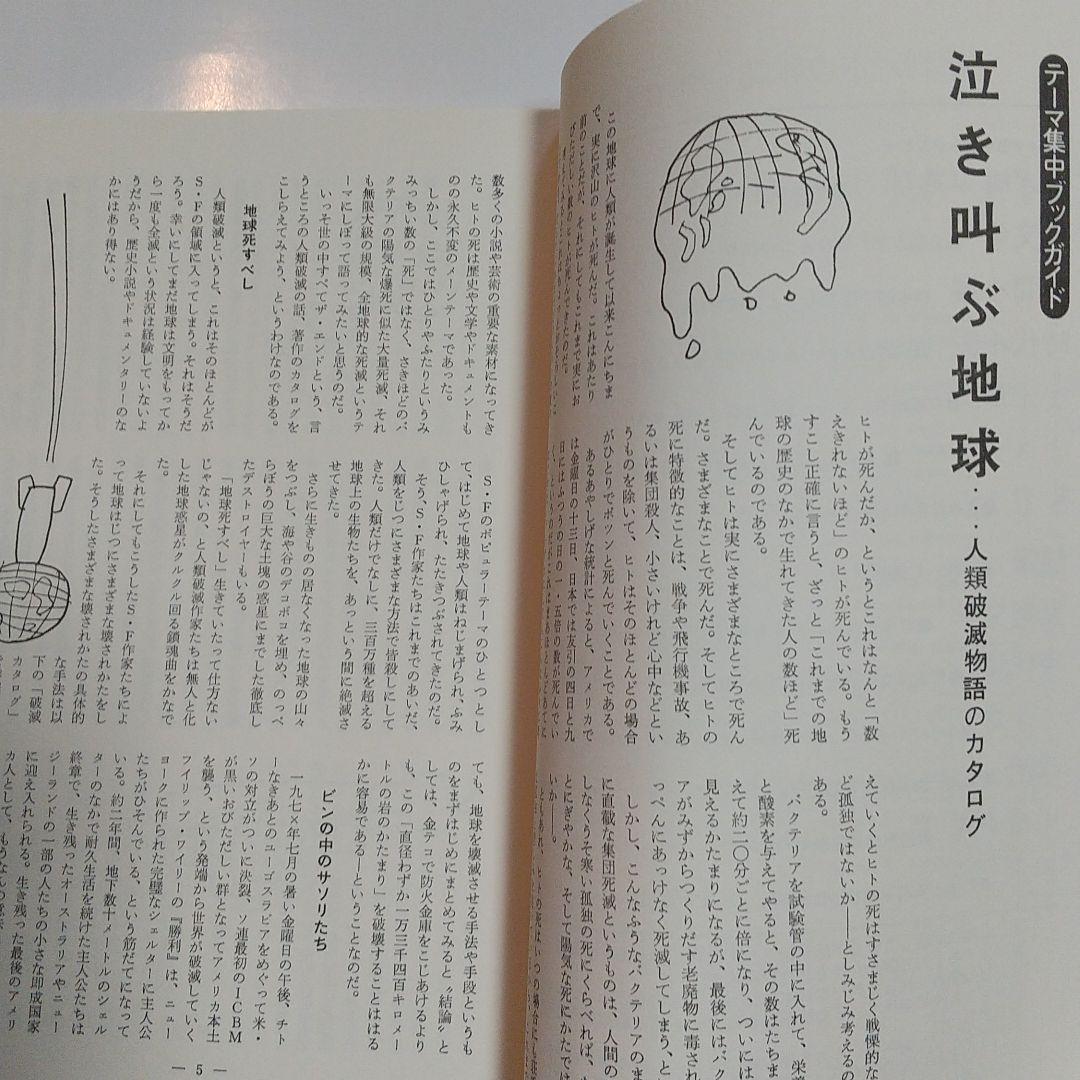 テーマ集中ブックガイド
泣き叫ぶ地球・・・人類破滅物語のカタログ
この地球に人類が誕生して以来こんにちま
で、実に沢山のヒトが死んだ。これはあたり
前のことだが、それにしてもこれまで実にお
びただしい数のヒトが死んできたのだ。
ヒトが死んだか、というとこれはなんと「数
えきれないほど」のヒトが死んでいる。もう
すこし正確に言うと、ざっと「これまでの地
球の歴史のなかで生れてきた人の数ほど」死
んでいるのである。
そしてヒトは実にさまざまなところで死ん
だ。さまざまなことで死んだ。そしてヒトの
死に特徴的なことは、戦争や飛行機事故、あ
るいは集団殺人、小さいけれど心中などとい
うものを除いて、ヒトはそのほとんどの場合
がひとりでポツンと死んでいくことである。
あるあやしげな統計によると、アメリカで
は金曜日の十三日、日本では友引の四日と九
日にはふつうの日の一・五倍の数が死んでい
えていくとヒトの死はすさまじく戦慄的な
ど孤独ではないか――としみじみ考えるの
ある。
バクテリアを試験管の中に入れて、栄養
と酸素を与えてやると、その数はたちま
えて約二〇分ごとに倍になり、ついには
見えるかたまりになるが、最後にはバク
アがみずからつくりだす老廃物に毒され
っぺんにあっけなく死滅してしまう、と
しかし、こんなふうなバクテリアのま
に直截な集団死滅というものは、人間の
しなくうそ寒い孤独の死にくらべれば、
とにぎやかな、そして陽気な死にかたでは
いか――。
数多くの小説や芸術の重要な素材になってき
た。ヒトの死は歴史や文学やドキュメントも
のの永久不変のメーンテーマであった。
しかし、ここではひとりやふたりというみ
みっちい数の「死」ではなく、さきほどのバ
クテリアの陽気な爆死に似た大量死滅、それ
も無限大級の規模、全地球的な死滅というテ
ーマにしぼって語ってみたいと思うのだ。
いっそ世の中すべてザ・エンドという、言
うところの人類破滅の話、著作のカタログを
こしらえてみよう、というわけなのである。
地球死すべし
人類破滅というと、これはそのほとんどが
S・Fの領域に入ってしまう。それはそうだ
ろう。幸いにしてまだ地球は文明をもってか
ら一度も全滅という状況は経験していないよ
うだから、歴史小説やドキュメンタリーのな
かにはあり得ない。
S・Fのポピュラーテーマのひとつとし
て、はじめて地球や人類はねじまげられ、ふみ
ひしゃげられ、たたきつぶされてきたのだ。
そう、S・F作家たちはこれまでのあいだ、
人類をじつにさまざまな方法で皆殺しにして
きた。人類だけでなしに、三百万種を超える
地球上の生物たちを、あっという間に絶滅さ
せてきた。
さらに生きものの居なくなった地球の山々
をつぶし、海や谷のデコボコを埋め、のっぺ
らぼうの巨大な土塊の惑星にまでした徹底し
たデストロイヤーもいる。
「地球死すべし」生きていたって仕方ない
じゃないの、と人類破滅作家たちは無人と化
した地球惑星がクルクル回る鎮魂曲をかなで
た。
それにしてもこうしたS・F作家たちによ
って地球はじつにさまざまな壊されかたをし
た。そうしたさまざまな壊されかたの具体的
な手法は以
下の「破滅
カタログ」
ても、地球を壊滅させる手法や手段というも
のをまずはじめにまとめてみると〝結論〟と
しては、金テコで防火金庫をこじあけるより
も、この「直径わずか一万三千四百キロメー
トルの岩のかたまり」を破壊することははる
かに容易である――ということなのだ。
ビンの中のサソリたち
一九七×年七月の暑い金曜日の午後、チト
ーなきあとのユーゴスラビアをめぐって米・
ソの対立がついに決裂、ソ連最初のICBM
が黒いおびただしい群となってアメリカ本土
を襲う、という発端から世界が破滅していく
フィリップ・ワイリーの『勝利』は、ニュー
ヨークに作られた完璧なシェルターに主人公
たちがひそんでいる、という筋だてになって
いる。約二年間、地下数十メートルのシェル
ターのなかで耐久生活を続けた主人公たちは
終章で、生き残ったオーストラリアやニュー
ジーランドの一部の人たちの小さな即成国家
に迎え入れられる。生き残った最後のアメリ
カ人として、
— 5 —